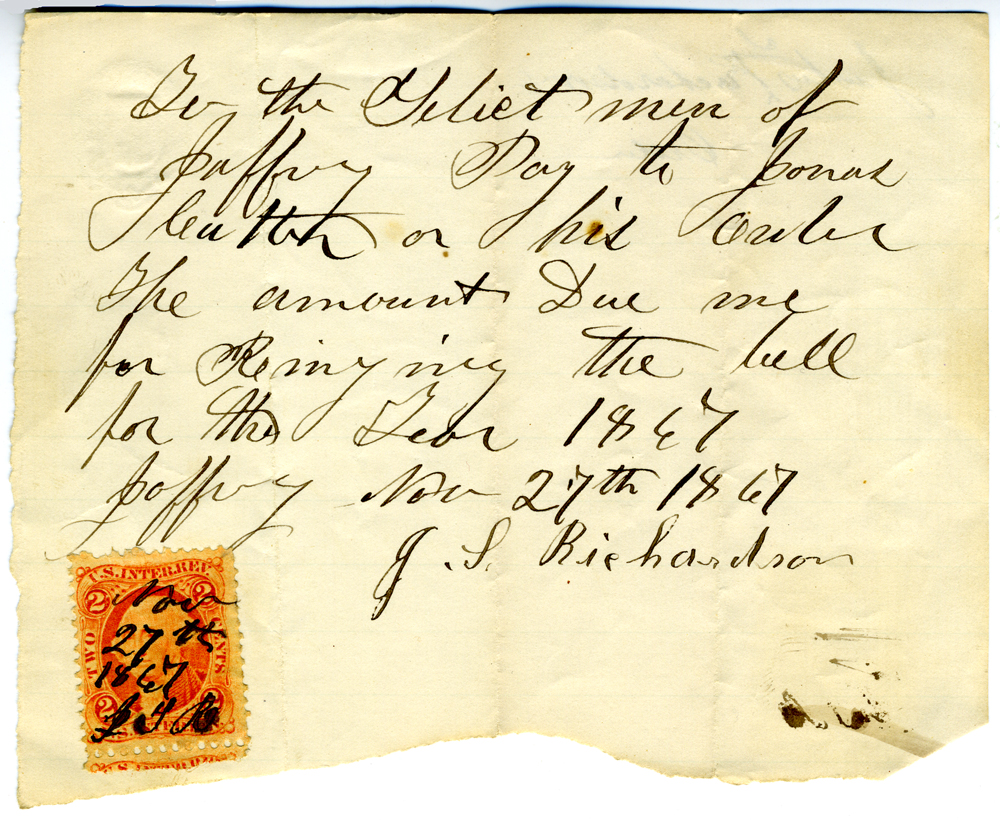 To the Selict men of
Jaffrey Pay to Jonas
Cutter or his Order
The amount Due me
for Ringing the bell
for the Year 1867
Jaffrey Nov 27th 1867
J. S. Richardson
U.S. INTER. REV
2 2
TWO CENTS
Nov
27th
1867
J S R
2 2